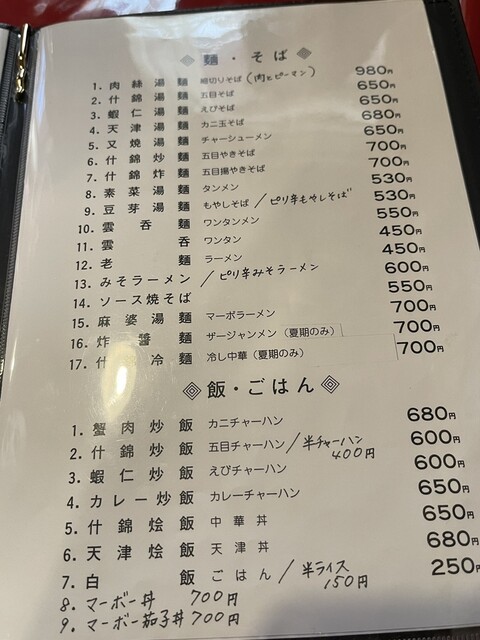 麺・そば
1. 肉絲湯麺 細切りそば（肉とピーマン） 980円
2. 什錦湯麺 五目そば 650円
3. 蝦仁湯麺 えびそば 650円
4. 天津湯麺 カニ玉そば 680円
5. 叉焼湯麺 チャーシューメン 650円
6. 什錦炒麺 五目やきそば 700円
7. 什錦炸麺 五目揚やきそば 700円
8. 素菜湯麺 タンメン 530円
9. 豆芽湯麺 もやしそば / ピリ辛もやしそば 530円
10. 雲呑麺 ワンタンメン 550円
11. 雲呑 ワンタン 450円
12. 老麺 ラーメン 450円
13. みそラーメン / ピリ辛みそラーメン 600円
14. ソース焼そば 550円
15. 麻婆湯麺 マーボラーメン 700円
16. 炸醤麺 ザージャンメン（夏期のみ） 700円
17. 什冷麺 冷し中華（夏期のみ） 700円
飯・ごはん
1. 蟹肉炒飯 カニチャーハン 680円
2. 什錦炒飯 五目チャーハン / 半チャーハン 400円 600円
3. 蝦仁炒飯 えびチャーハン 600円
4. カレー炒飯 カレーチャーハン 650円
5. 什錦烩飯 中華丼 650円
6. 天津烩飯 天津丼 680円
7. 白飯 ごはん / 半ライス 150円 250円
8. マーボー丼 700円
9. マーボー茄子丼 700円